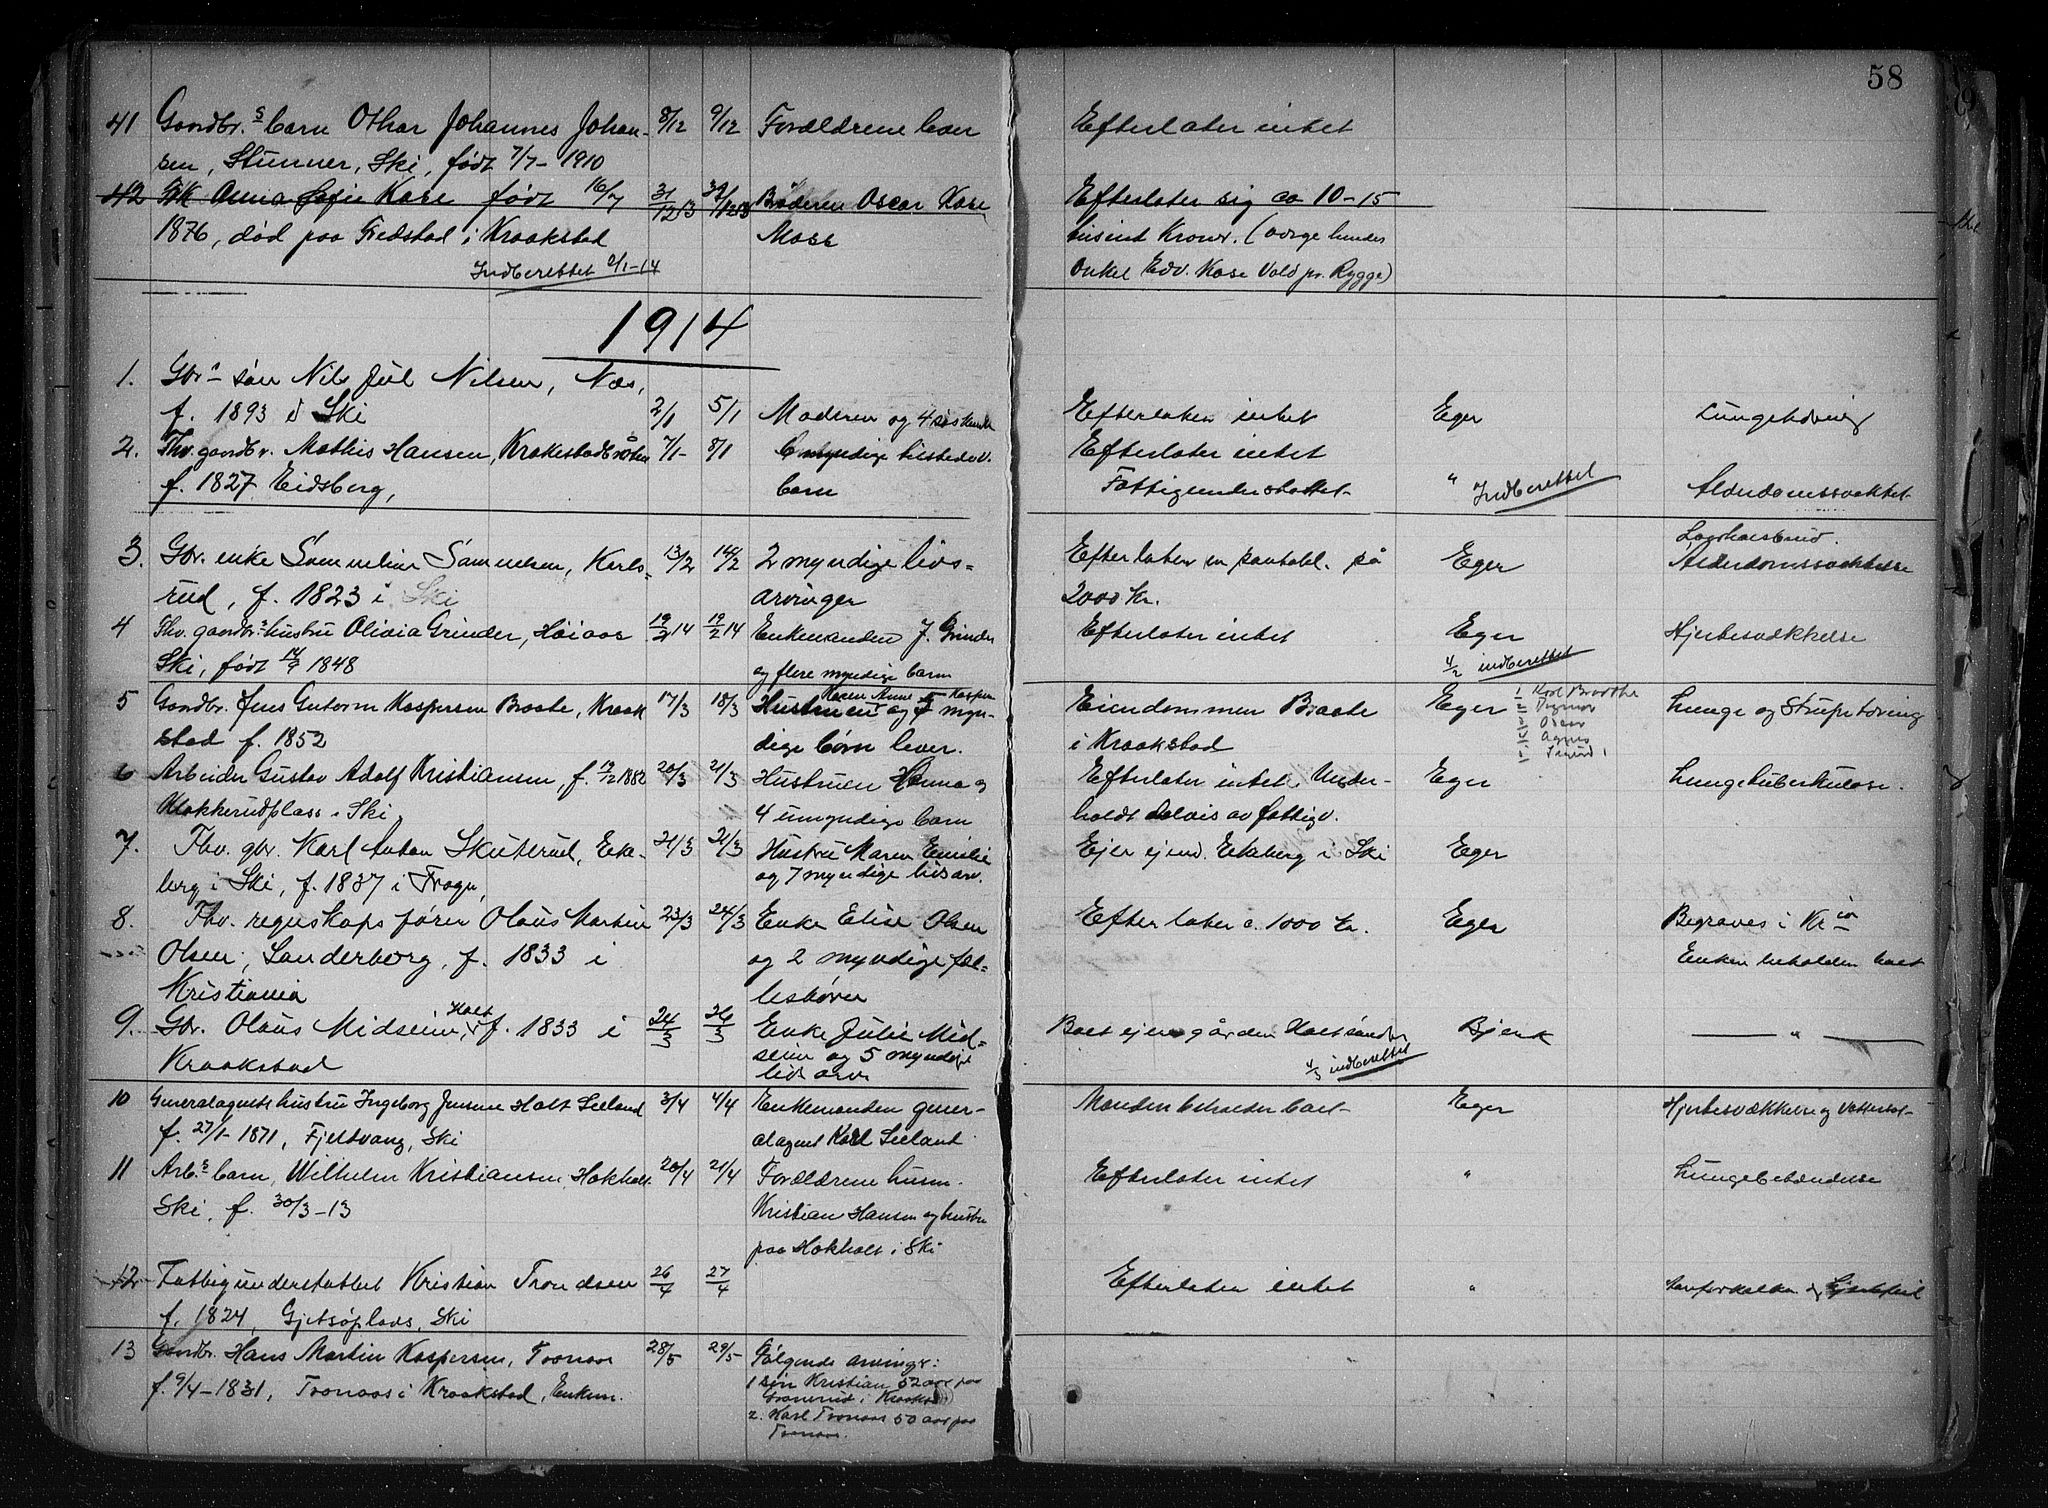 58
41 Gaardbr.s barn Othar Johannes Johan- 8/12 9/12 Forældrene lever Efterlater intet
sen, Stunner, Ski, født 7/7-1910
42 Anna Sofie Kase født 16/7 31/12 13 Broderen Oscar Kase Efterlater sig ca 10-15
1876, død paa Fredstad i Kraakstad Moss tusind Kroner. (
Indberettet 2/1-14 Onkel Edv. Kase Vold pr. Rygge)
1914
1. Gbr.s søn Nils Jul Nilsen, Næs,
f. 1893 i Ski 2/1 5/1 Moderen og 4 søskende Efterlater intet Eger Lungetæring
2. Fhv. gaardbr. Mathis Hansen, 7/1- 8/1 6 myndige tilstedev. Efterlater intet
f. 1827 Eidsberg, barn Fattigunderstøttet " Indberettet Alderdomssvakhet
3. Gbr. enke Samueline Samuelsen, Karls- 13/2 14/2 2 myndige livs- Efterlater en pantobl. på Eger Alderdomssvakkelse
rud, f. 1823 i Ski arvinger 2000 Kr.
4 Fhv. gaardbr.s hustru Olivia Grinder, Høiaas 19/2 14 19/2 14 Enkemanden J. Grinder Efterlater intet Eger Hjertesvækkelse
Ski, født 14/9 1848 og flere myndige barn 4/2 indberettet
5 Gaardbr. Jens Gutorm Kaspersen Braate, Kraak 17/3 18/3 Hustruen Karen Anne Kaspers og 5 myn- Eiendommen Braate Eger 1 Karl Braathe Lunge og Strupetæring
stad f. 1852 dige børn lever. i Kraakstad Dagmar Oscar Agnes
6 Arbeider Gustav Adolf Kristiansen, f. 17/2 1882 20/3 21/3 Hustruen Hanna og Efterlater intet. Under- Eger Lungetuberkulose.
Klokkerudplass i Ski 4 umyndige barn holdt delvis av fattigv.
7. Fhv. gbr. Karl Anton Skuterud, Eke- 21/3 21/3 Hustru Maren Emilie Ejer ejend. Ekeberg i Ski Eger
berg i Ski, f. 1837 i Frogn, og 7 myndige livsarv.
8. Fhv. regnskapsfører Olaus Martin 23/3 24/3 Enke Elise Olsen Efterlater c. 1000 Kr. Eger Begraves i Kr.ia
Olsen, Sanderborg, f. 1833 i og 2 myndige fæl- Enken beholder boet
Kristiania lesbørn
9. Gbr. Olaus Midseim, Holt f. 1833 i 24/3 26/3 Enke Julie Mid- Boet ejer gården Holt søndre Bjerk — " —
Kraakstad seim og 5 myndige 4/3 indberettet
livsarv
10 Generalagents hustru Ingeborg Jensine Holt Seeland 3/4 4/4 Enkemanden gener- Manden beholder boet Eger Hjertesvækkelse og
f. 27/1-1871, Fjeltvang, Ski alagent Karl Seeland
11 Arb.s barn, Wilhelm Kristiansen, Hokholt 20/4 21/4 Forældrene husm. Efterlater intet " Lungebetændelse
Ski, f. 30/3-13 Kristian Hansen og hustru
paa Hokholt i Ski
12 Fattigunderstøttet Kristian Trondsen 26/4 27/4 Efterlater intet " og Hjertefeil
f. 1824, Gjetsøplads, Ski
13 Gaardbr. Hans Martin Kaspersen, Tronaas 28/5 29/5 Følgende arvinger:
f. 9/4-1831, Tronaas i Kraakstad, Enkem. 1 søn Kristian 52 aar paa
Graanerud i Kraakstad
2. Karl Tronaas 50 aar paa
Tronaas.